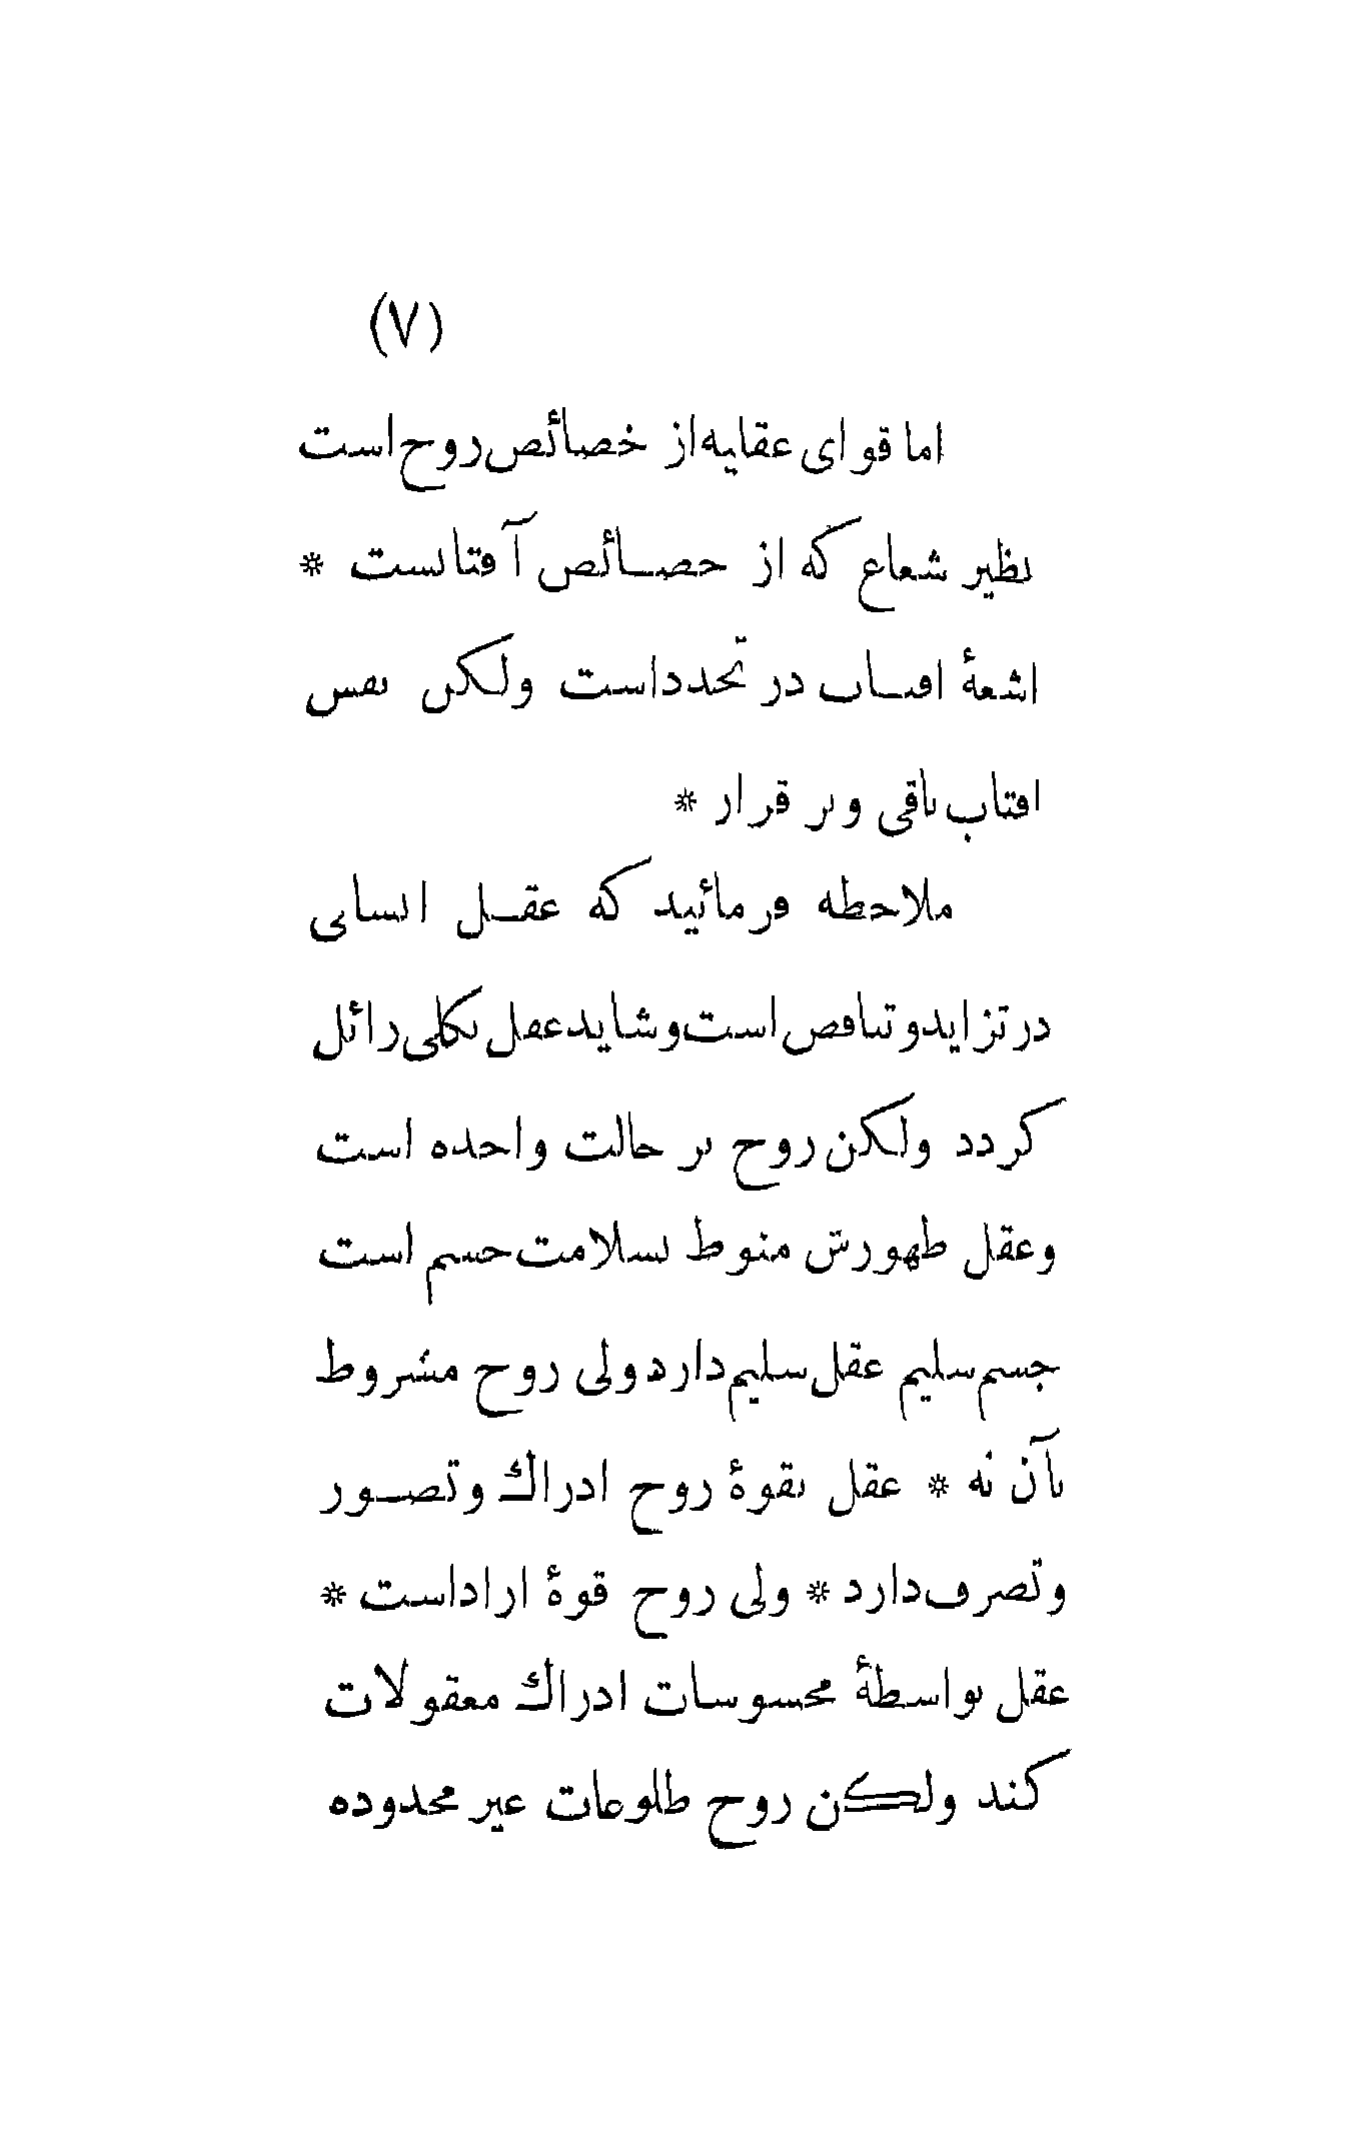 (٧)
اما قوای عقلیه از خصائص روح است
نظیر شعاع که از خصائص آفتابست *
اشعهٔ افتاب در تجدد است ولکن نفس
افتاب باقی و بر قرار *
ملاحظه فرمائید که عقل انسانی
در تزاید و تناقص است و شاید عقل بکلی زائل
کردد ولکن روح بر حالت واحده است
و عقل ظهورش منوط بسلامت جسم است
جسم سلیم عقل سلیم دارد ولی روح مشروط
بآن نه * عقل بقوهٔ روح ادراك و تصور
و تصرف دارد * ولی روح قوهٔ ازاد است *
عقل بواسطهٔ محسوسات ادراك معقولات
کند ولکن روح طلوعات غیر محدوده